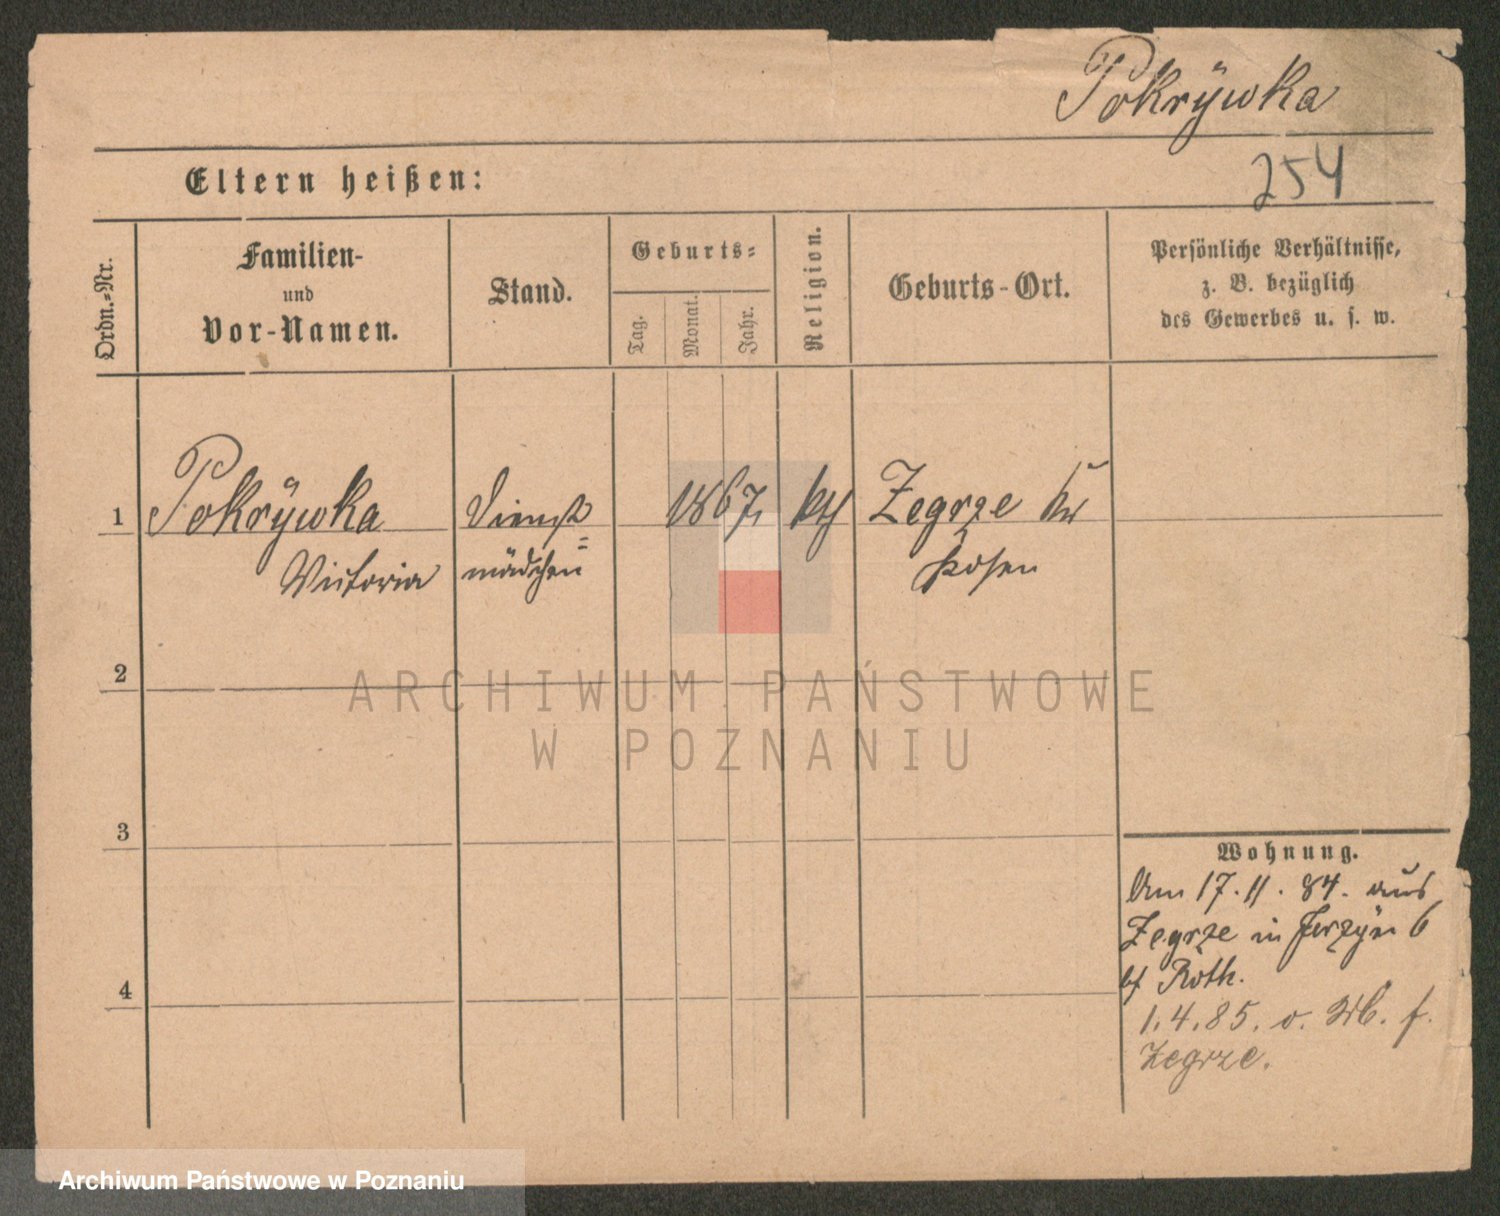 Pokrÿwka
254
Eltern heißen:
Ordn.-Nr.
Familien-
und
Vor-Namen.
Stand.
Geburts-
Tag.
Monat.
Jahr.
Religion.
Geburts-Ort.
Persönliche Verhältnisse,
z. B. bezüglich
des Gewerbes u. s. w.
1 Pokrÿwka Dienst= 1867 kth Zegrze Kr
Victoria mädchen Posen
2
ARCHIWUM PAŃSTWOWE
W POZNANIU
3
Wohnung.
Am 17.11.84. aus
Zegrze in Jerzÿce 6
bei Roth.
4
1.4.85. o. Wb. f.
Zegrze.
Archiwum Państwowe w Poznaniu